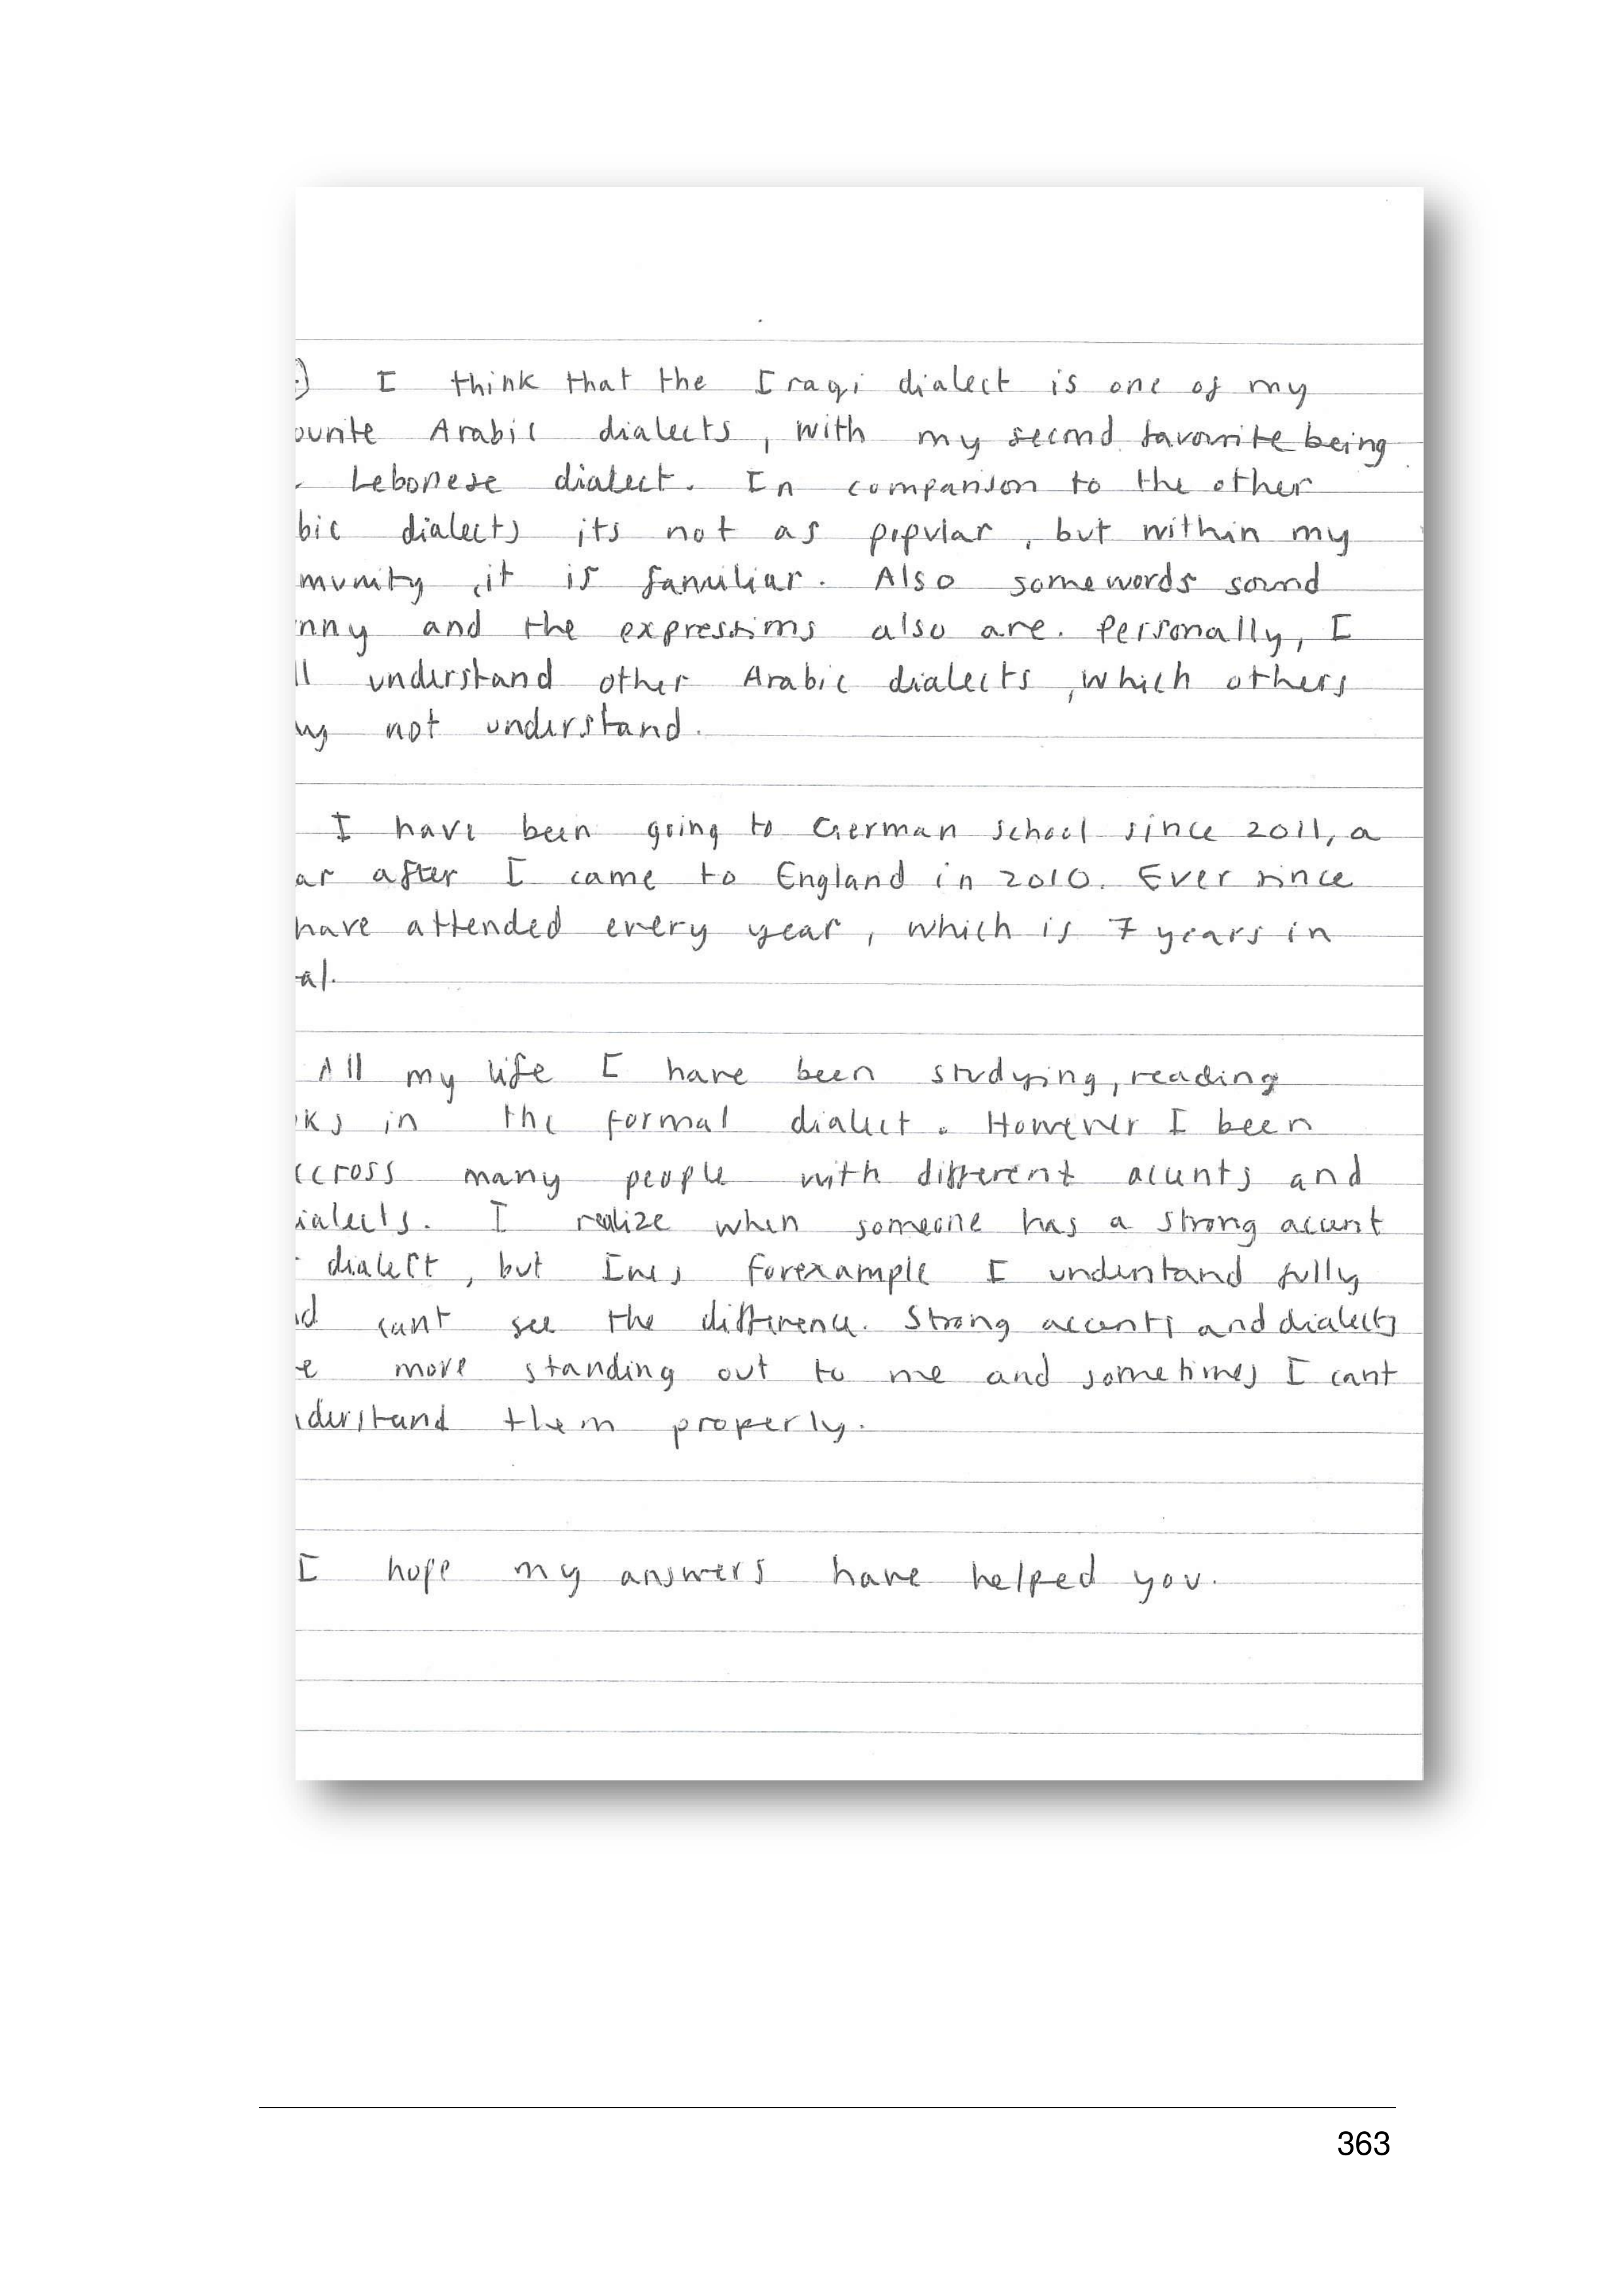 I think that the Iraqi dialect is one of my
ourite Arabic dialects, with my second favourite being
Lebonese dialect. In comparison to the other
bic dialects its not as popular, but within my
munity, it is familiar. Also somewords sound
nny and the expressions also are. Personally, I
ll understand other Arabic dialects, which others
not understand.
I have been going to German school since 2011, a
ar after I came to England in 2010. Ever since
have attended every year, which is 7 years in
al.
All my life I have been studying, reading
ks in the formal dialect. However I been
ccross many people with different acents and
ialects. I realize when someone has a strong acent
dialect, but forexample I understand fully
d cant see the difference. Strong accents and dialects
e more standing out to me and sometimes I cant
derstand them properly.
I hope my answers have helped you.
363